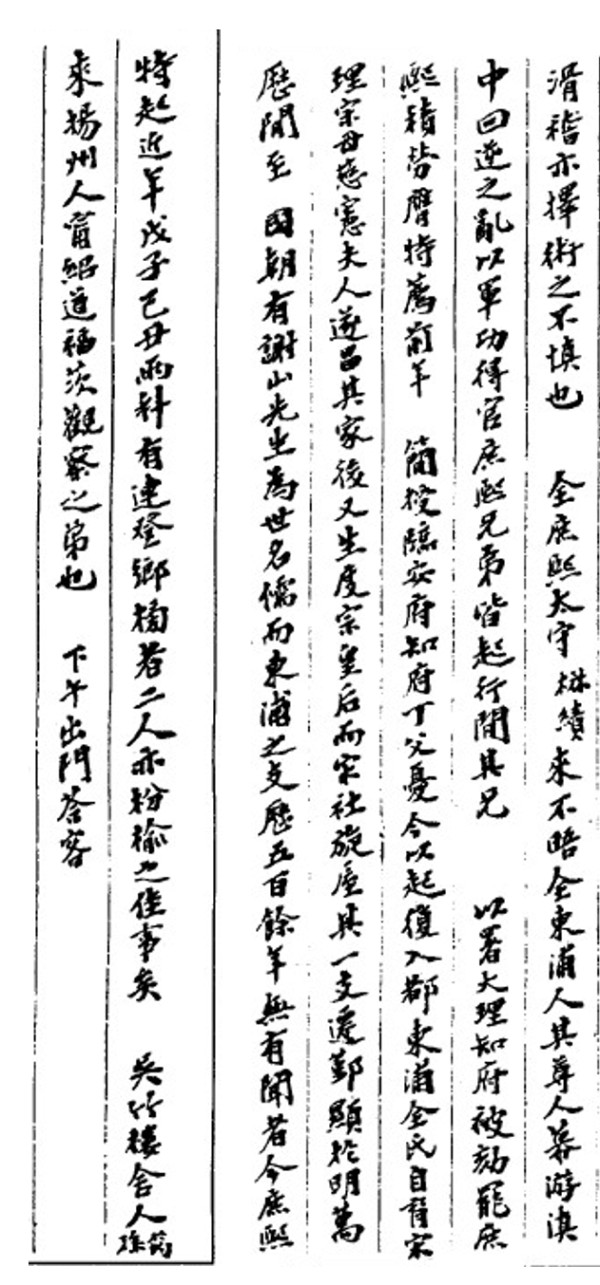 滑稽亦擇術之不慎也　全庶熙太守楙績來不晤全東浦人其尊人幕游滇
中回逆之亂以軍功得官庶熙兄弟皆起行間其兄　以署大理知府被劾罷庶
熙積勞膺特薦前年　簡授臨安府知府丁父憂今以起復入都東浦全氏自宋
理宗母慈憲夫人遂昌其家後又生度宗皇后而宋社旋屋其一支遷鄞顯於明萬
歷間至　國朝有謝山先生為世名儒而東浦之支歷五百餘年無有聞者今庶熙
特起近年戊子己丑兩科有連登鄉榜者二人亦枌榆之佳事矣　吳竹樓舍人
來揚州人甯紹道福茨觀察之弟也　下午出門荅客